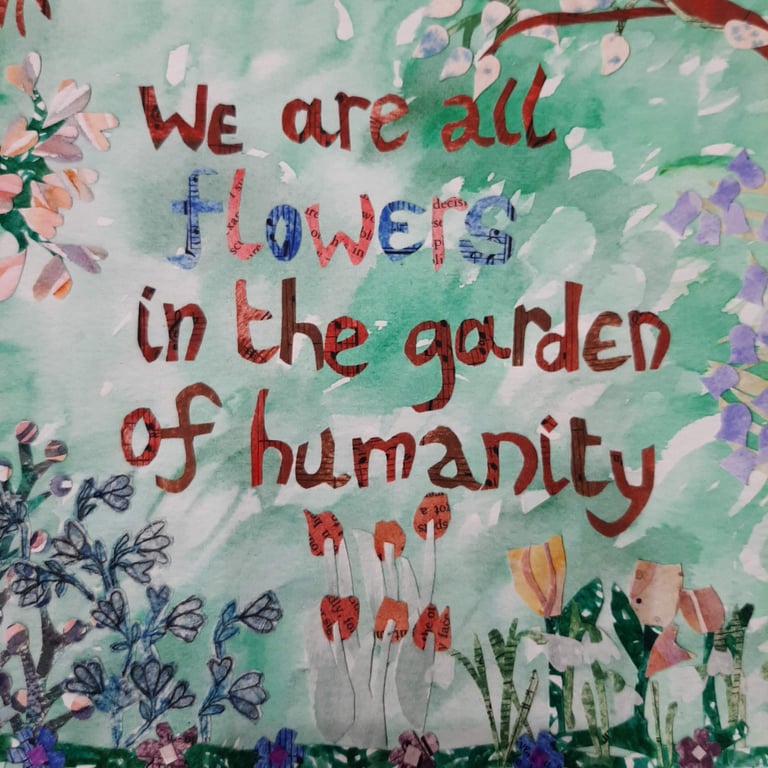 We are all
flowers
in the garden
of humanity